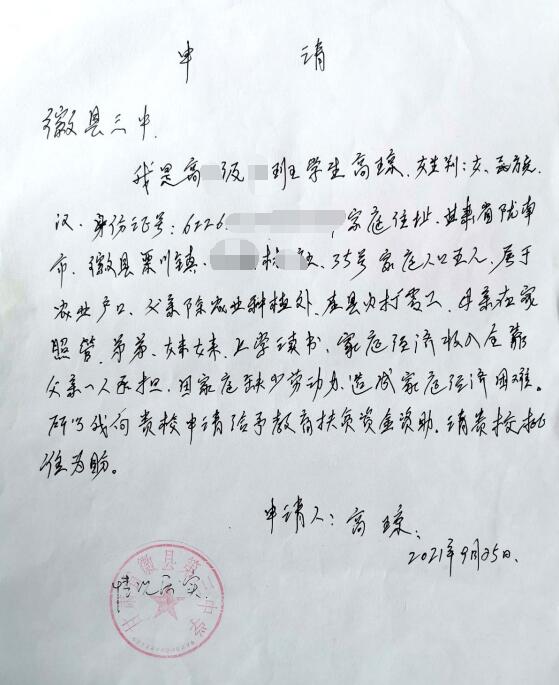 申 请
徽县三中
我是高 级 班学生高琼.女性别:女、民族:
汉.身份证号:6226 ,家庭住址、甘肃省陇南
市、徽县栗川镇. 村 社.35号家庭人口五人、属于
农业户口、父亲除农业种植外、在县内打零工、母亲在家
照管、弟弟、妹妹、上学读书、家庭经济收入全靠
父亲一人承担、因家庭缺少劳动力、造成家庭经济困难。
所以我向贵校申请给予教育扶贫资金资助、请贵校批
准为盼。
申请人:高琼.
2021年9月25日.
徽县第三中学
情况属实.